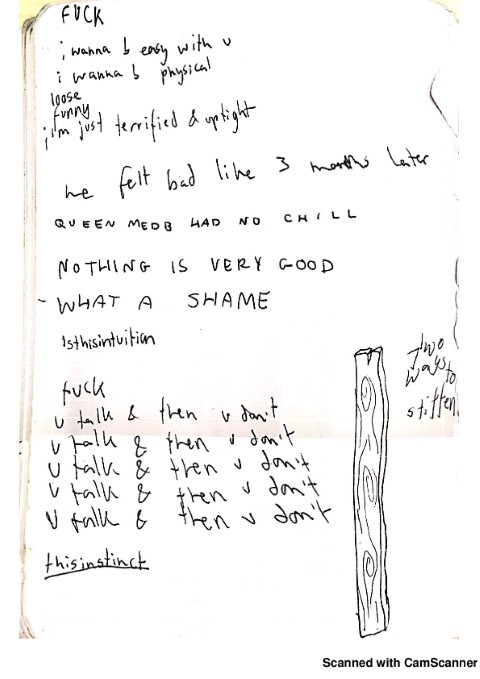 FUCK
i wanna b easy with u
i wanna b physical
loose
funny
i'm just terrified & uptight
he felt bad like 3 months later
QUEEN MEDB HAD NO CHILL
NOTHING IS VERY GOOD
- WHAT A SHAME
Isthisintuition
two
ways to
stiffen
fuck
u talk & then u don't
u talk & then u don't
u talk & then u don't
u talk & then u don't
u talk & then u don't
thisinstinct
Scanned with CamScanner